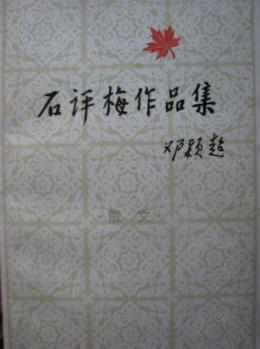 石评梅作品集
邓颖超
·散文·